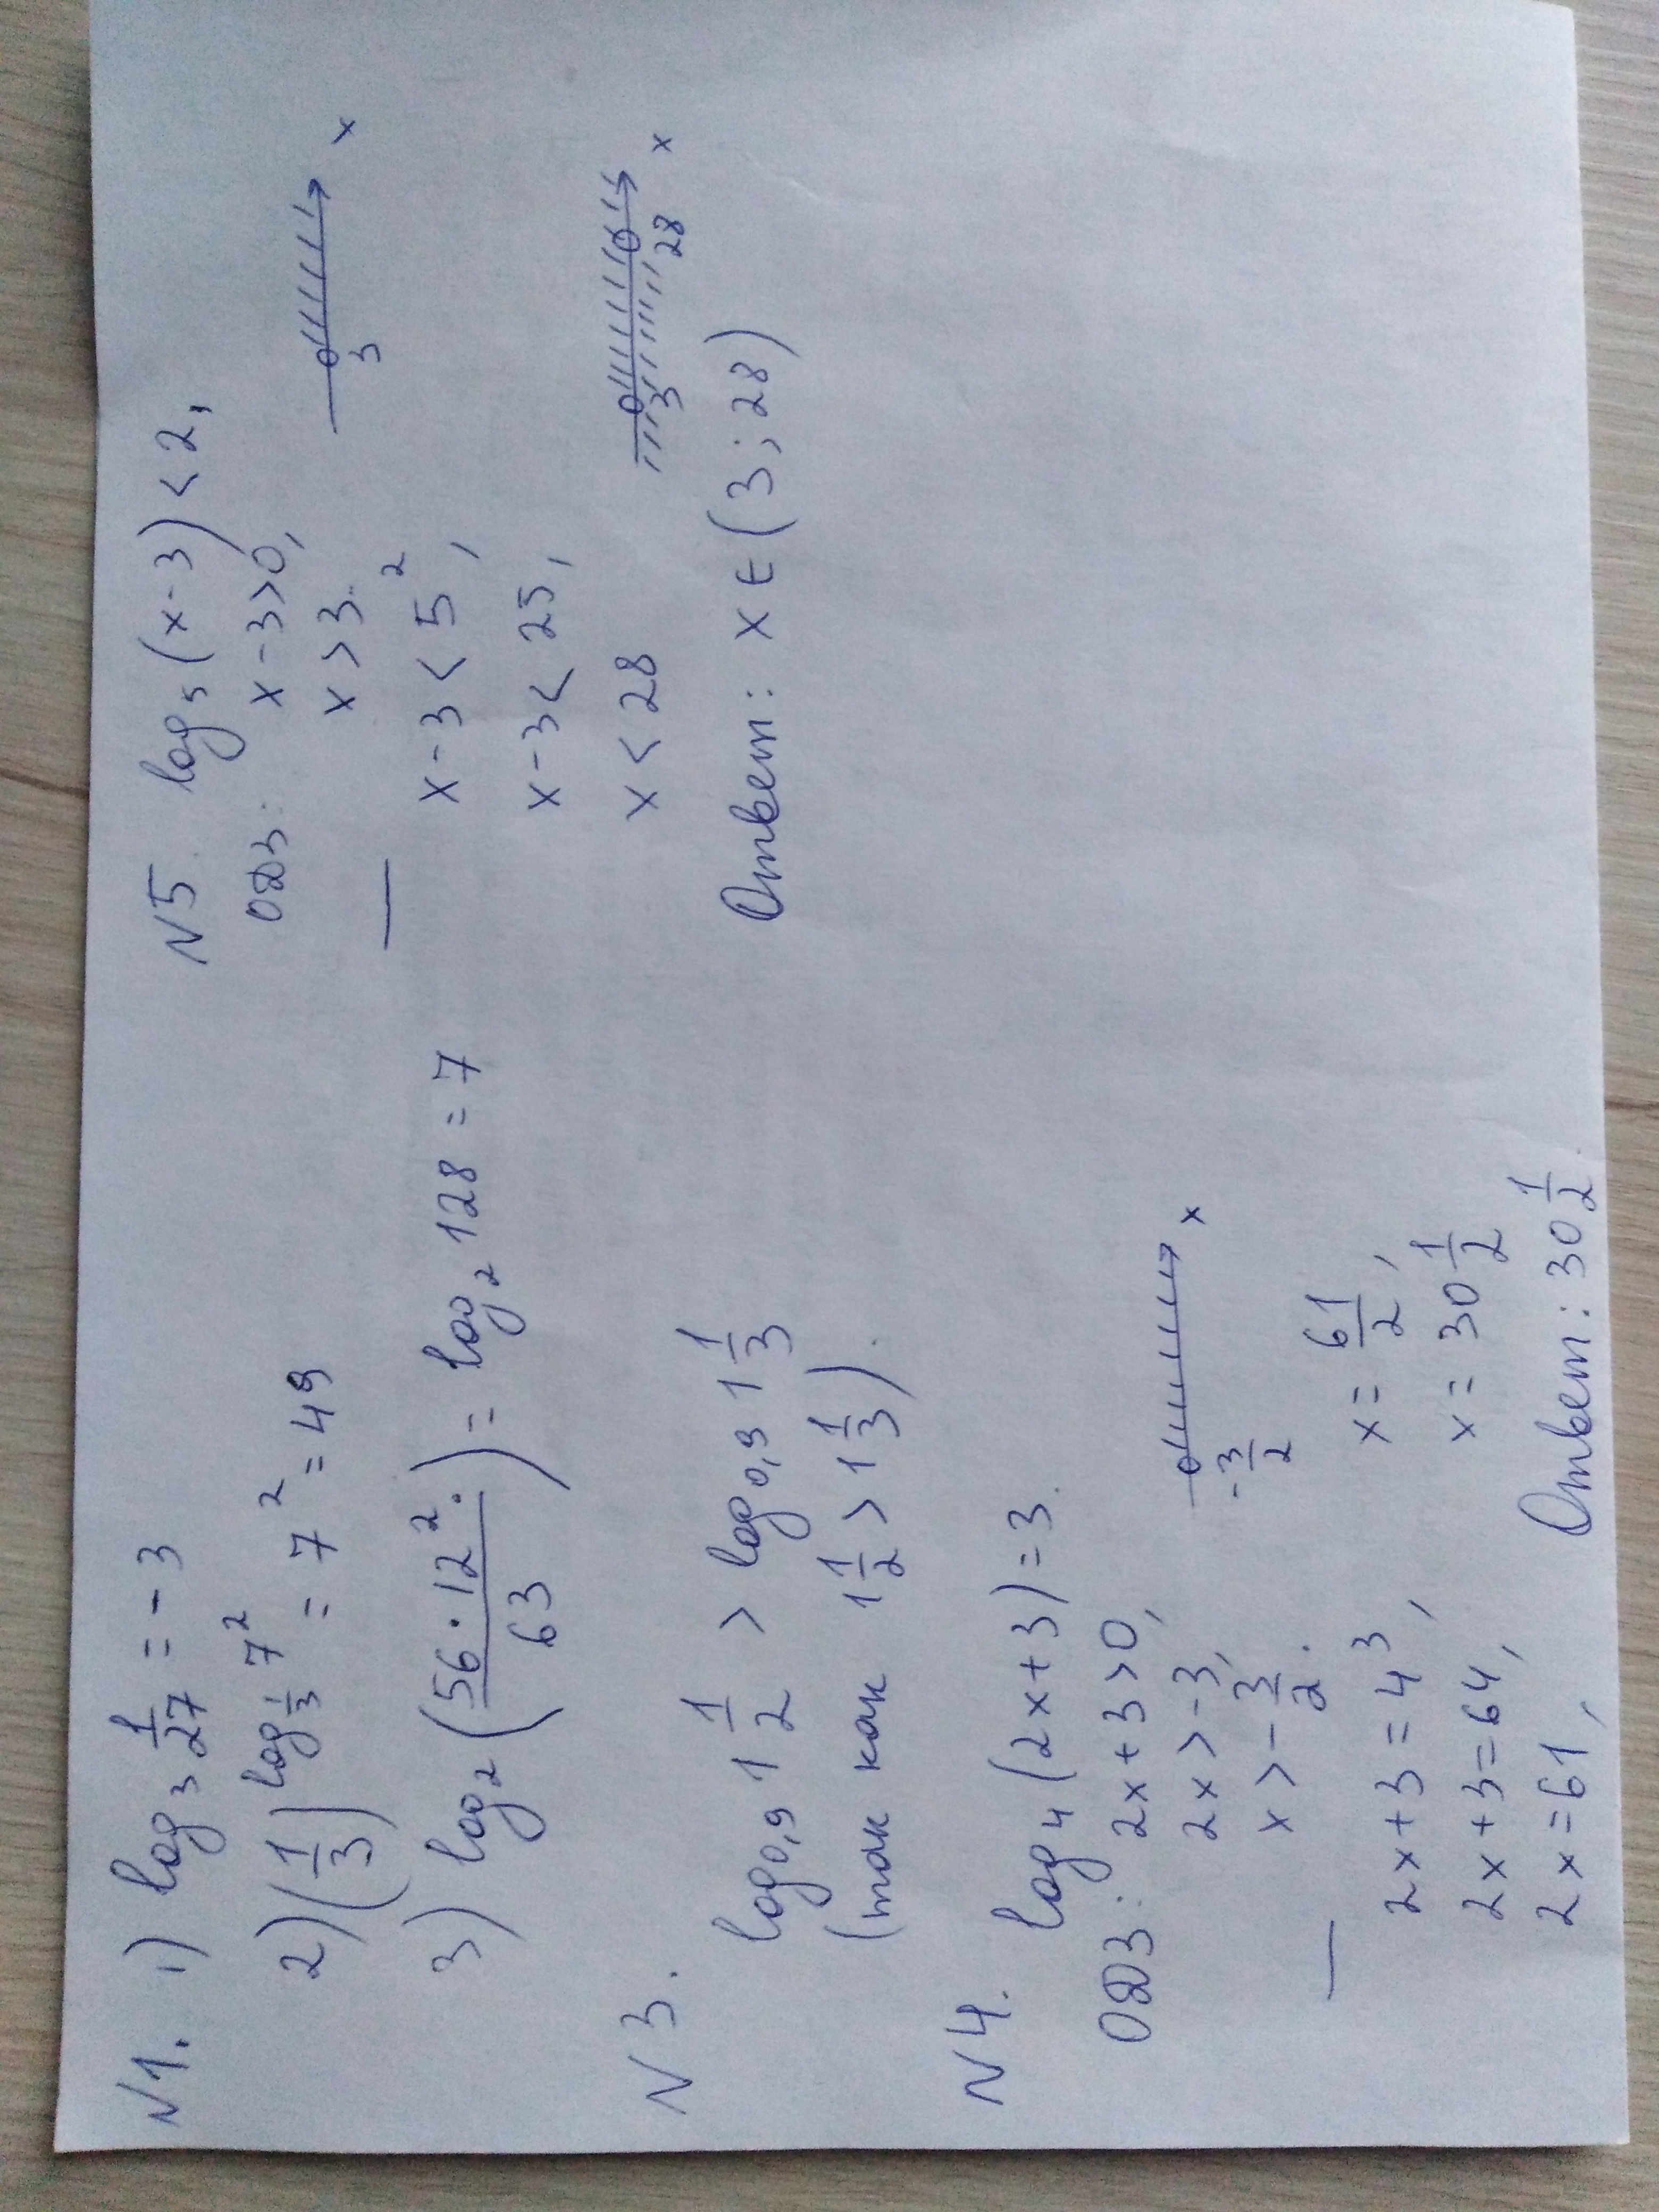 N1. 1) log₃ 1/27 = -3
2) (1/3)^(log_(1/3) 7²) = 7² = 49
3) log₂ (56 · 12² · / 63) = log₂ 128 = 7
N 3.
log₀,₉ 1 1/2 > log₀,₉ 1 1/3
(так как 1 1/2 > 1 1/3).
N 4. log₄ (2x+3) = 3.
ОДЗ: 2x+3>0,
2x>-3,
x>-3/2.
-3/2 x
2x+3=4³,
2x+3=64,
2x=61,
x=61/2,
x=30 1/2
Ответ: 30 1/2.
N5 log₅ (x-3) < 2,
ОДЗ: x-3>0,
x>3.
3 x
x-3 < 5²,
x-3 < 25,
x < 28
3 28 x
Ответ: x ∈ (3; 28)